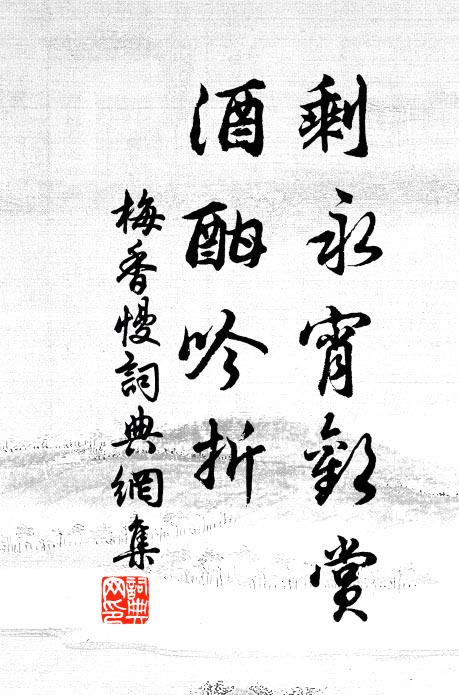 剩永宵歡賞
酒酣吟折
梅香慢詞典網集
詞典网印